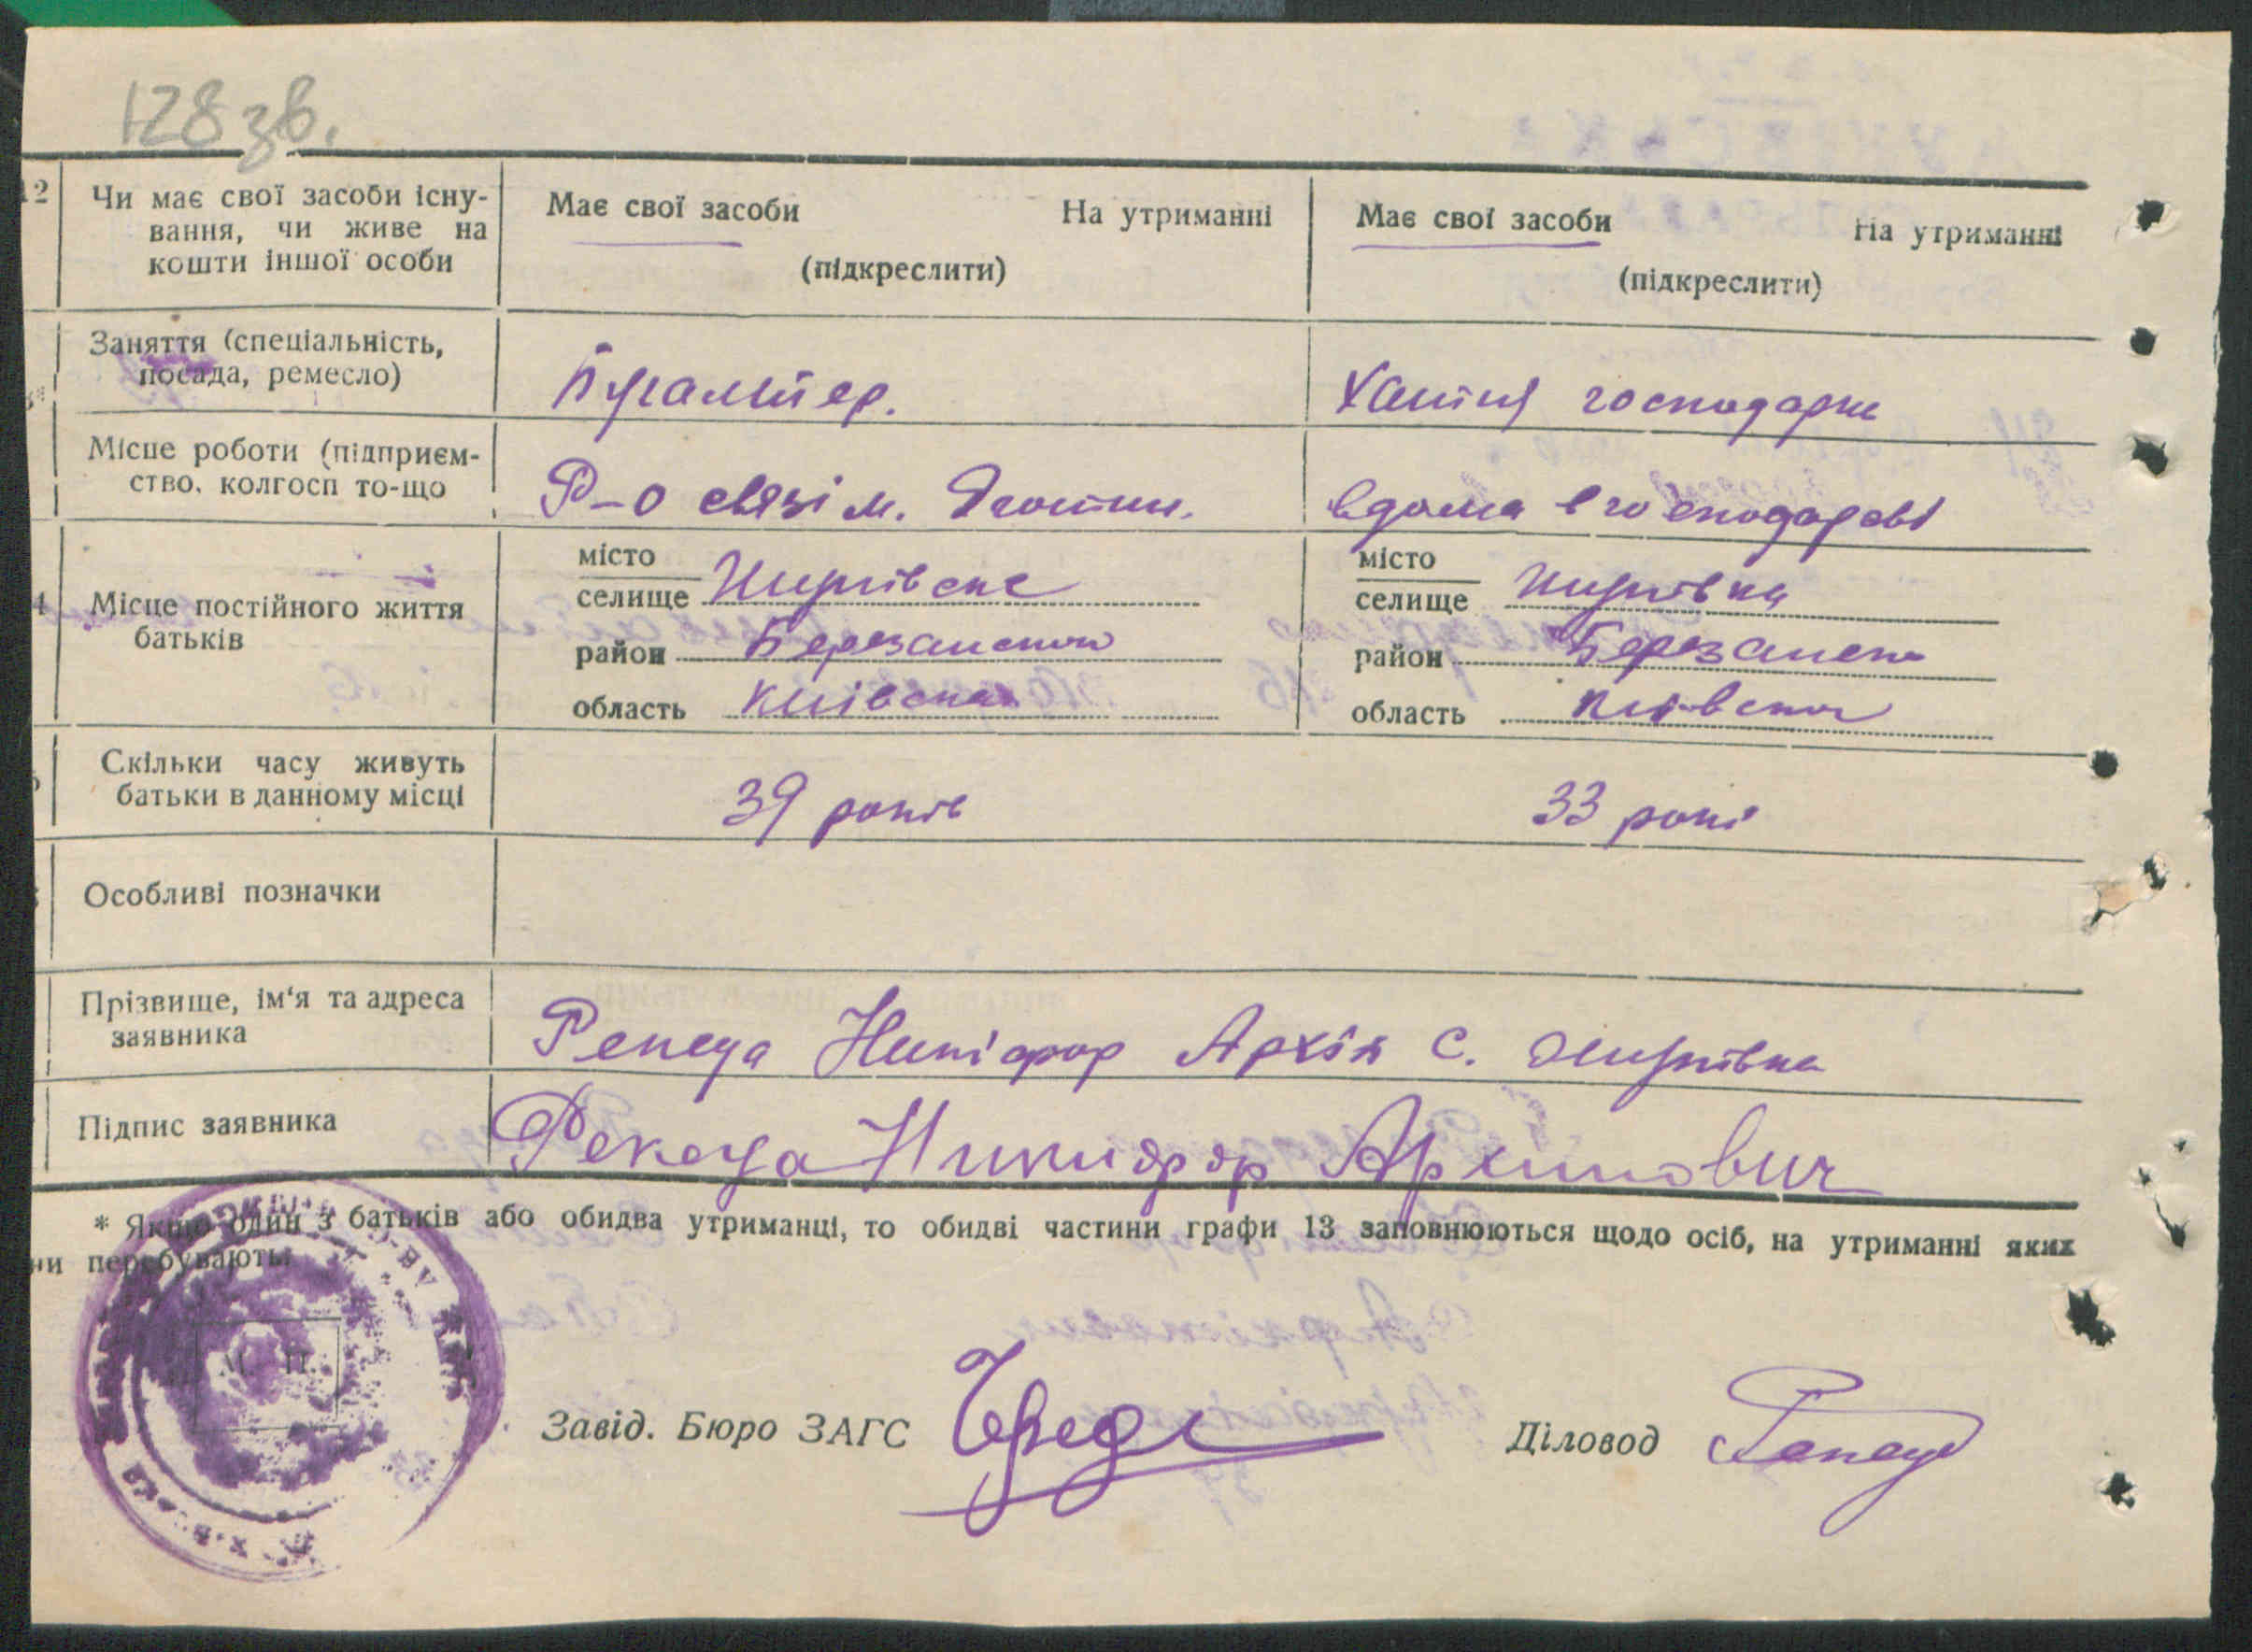 128 зв.
12 Чи має свої засоби існу-
вання, чи живе на
кошти іншої особи
Має свої засоби На утриманні
(підкреслити)
Має свої засоби На утриманні
(підкреслити)
Заняття (спеціальність,
посада, ремесло)
Бухалтер.
Хатня господарка
Місце роботи (підприєм-
ство, колгосп то-що
Р-о связі м. Яготин.
вдома в господарстві
Місце постійного життя
батьків
місто
селище
район Березанский
область Київская
місто
селище
район Березанск
область Київская
Скільки часу живуть
батьки в данному місці
39 років
33 роки
Особливі позначки
Прізвище, ім'я та адреса
заявника
Рекеда Никіфор Архіп с.
Підпис заявника
Рекеда Никифор Архипович
* Якщо один з батьків або обидва утриманці, то обидві частини графи 13 заповнюються щодо осіб, на утриманні яких
ни перебувають
М. П.
Завід. Бюро ЗАГС
Діловод